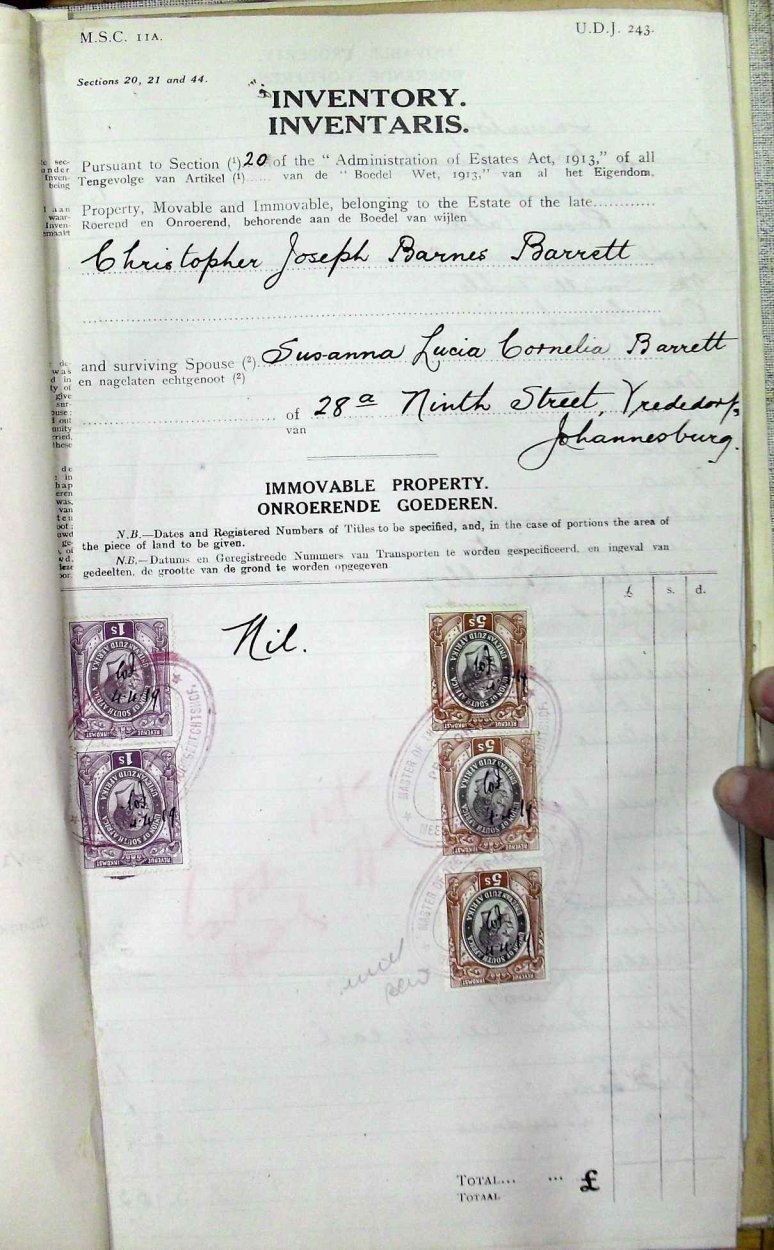 M.S.C. 11A.
U.D.J. 243.
Sections 20, 21 and 44.
INVENTORY.
INVENTARIS.
Pursuant to Section (¹) 20 of the "Administration of Estates Act, 1913," of all
Tengevolge van Artikel (¹)...... van de "Boedel Wet, 1913," van al het Eigendom,
Property, Movable and Immovable, belonging to the Estate of the late............
Roerend en Onroerend, behorende aan de Boedel van wijlen
Christopher Joseph Barnes Barrett
and surviving Spouse (²) Susanna Lucia Cornelia Barrett
en nagelaten echtgenoot (²)
of 28a Ninth Street, Vrededorp,
van
Johannesburg.
IMMOVABLE PROPERTY.
ONROERENDE GOEDEREN.
N.B.—Dates and Registered Numbers of Titles to be specified, and, in the case of portions the area of
the piece of land to be given.
N.B.—Datums en Geregistreede Nummers van Transporten te worden gespecificeerd, en ingeval van
gedeelten, de grootte van de grond te worden opgegeven
£ s. d.
Nil.
1s
UNION OF SOUTH AFRICA
UNIE VAN ZUID AFRIKA
REVENUE INKOMST
4.4.19
1s
UNION OF SOUTH AFRICA
UNIE VAN ZUID AFRIKA
REVENUE INKOMST
4.4.19
5s
UNION OF SOUTH AFRICA
UNIE VAN ZUID AFRIKA
REVENUE INKOMST
5s
UNION OF SOUTH AFRICA
UNIE VAN ZUID AFRIKA
REVENUE INKOMST
4.4.19
5s
UNION OF SOUTH AFRICA
UNIE VAN ZUID AFRIKA
REVENUE INKOMST
MASTER OF
MASTER OF
TOTAL... ... £
TOTAAL